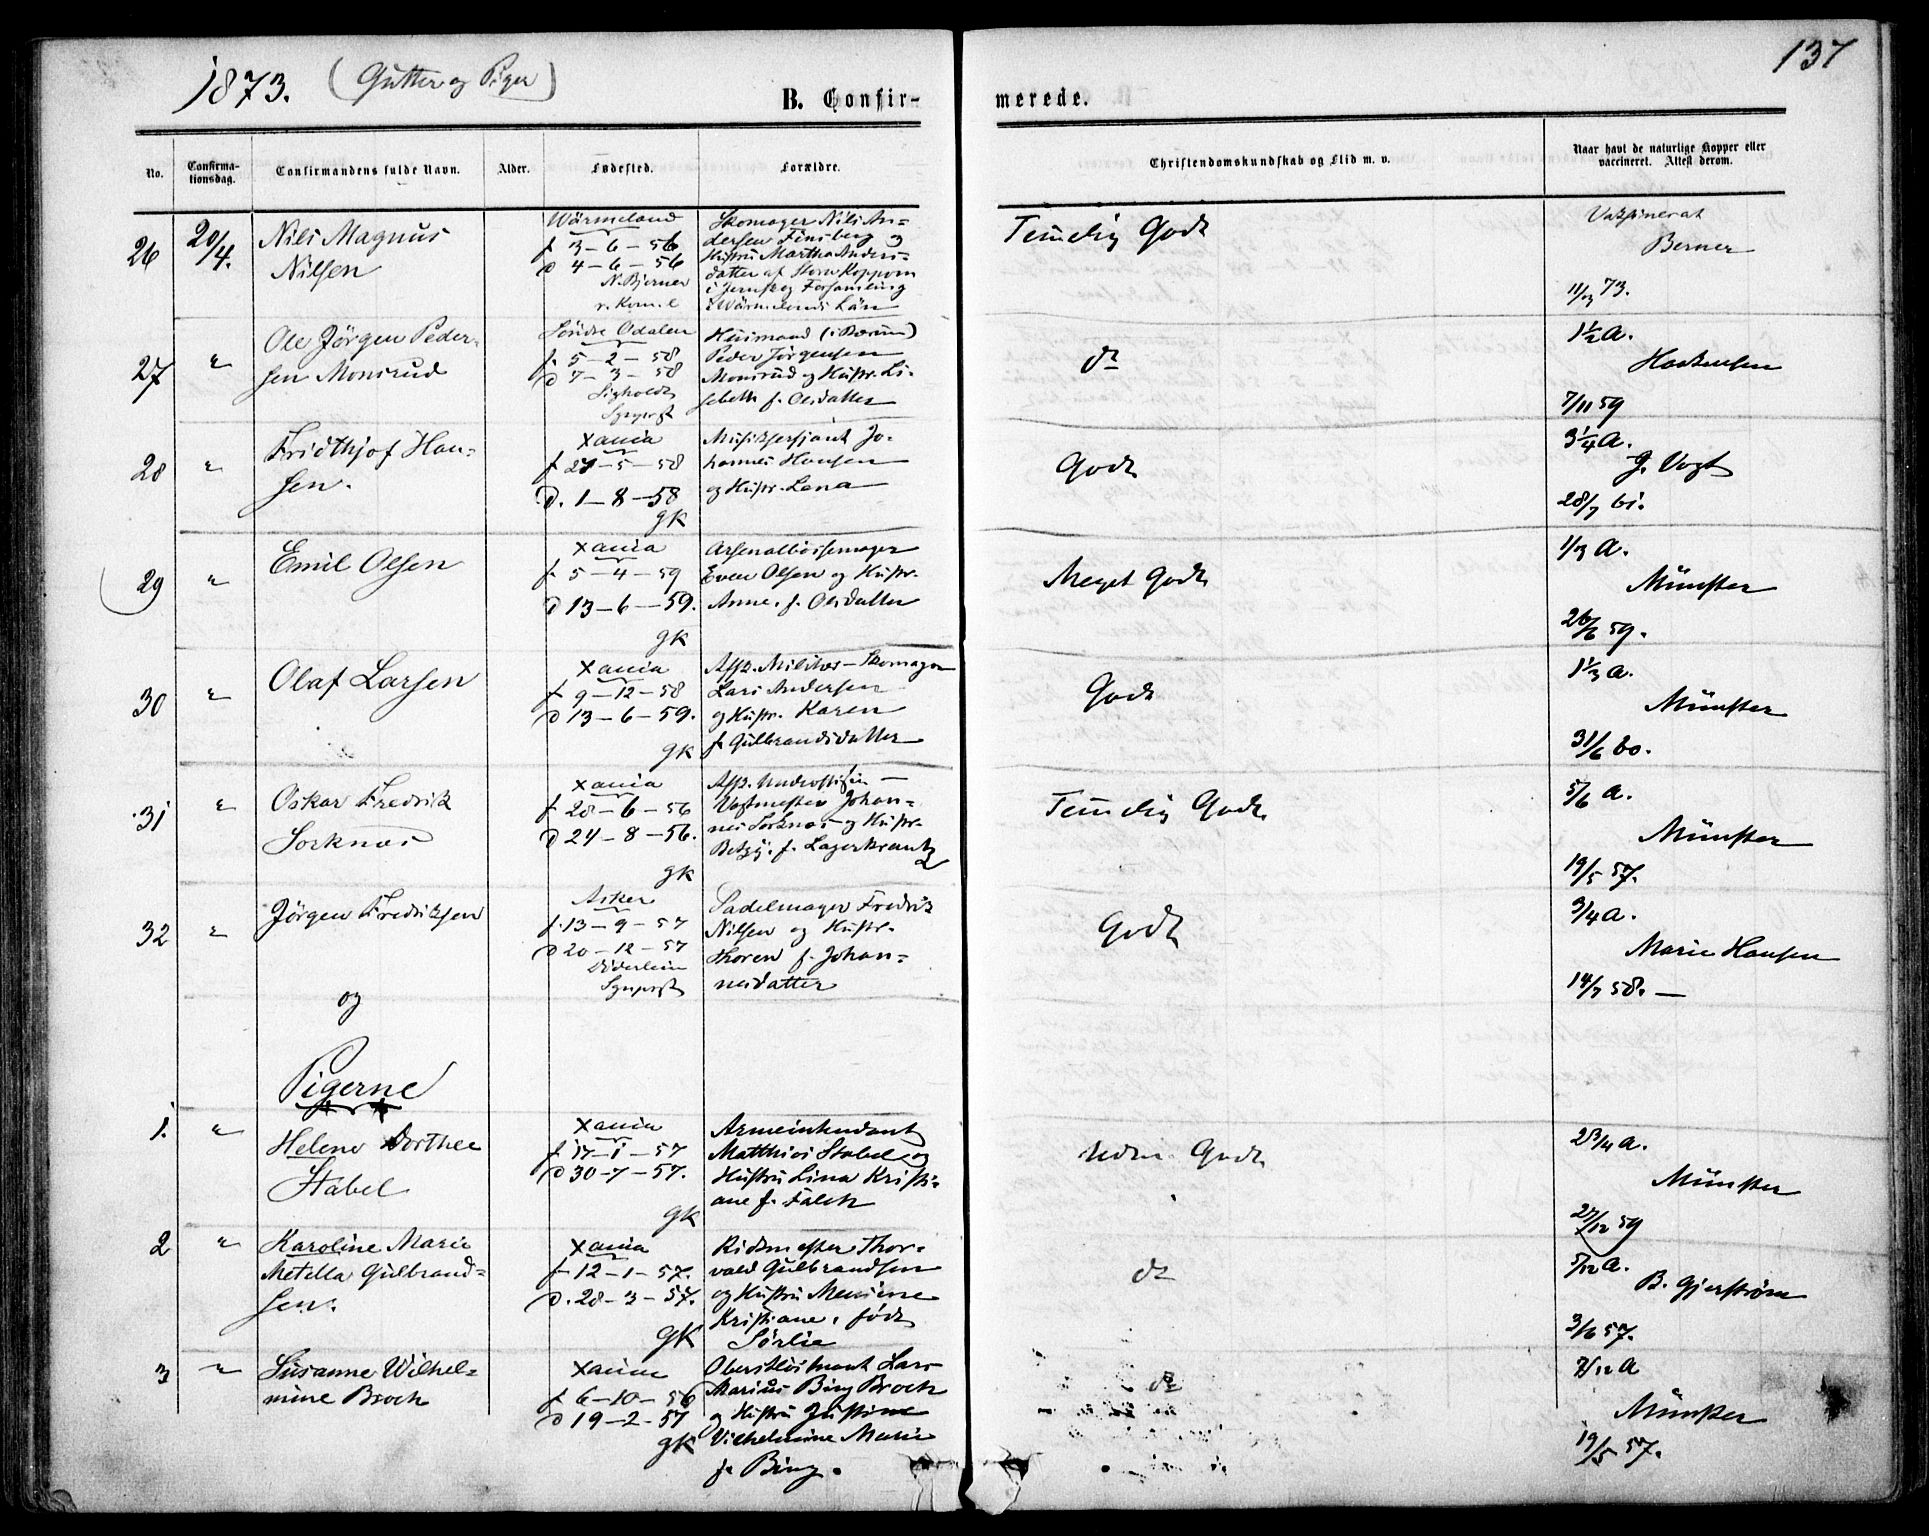 1873. (Gutter og Piger)
137
B. Confir-
merede.
No.
Confirma-
tionsdag.
Confirmandens fulde Navn.
Alder.
Fødested.
Forældre.
Christendomskundskab og Flid m. v.
Naar havt de naturlige Kopper eller
vaccineret. Attest derom.
26
20/4.
Nils Magnus
Nilsen
Wärmeland
f 3-6-56
d 4-6-56
N. Bjerner
Skomager Nils An-
dersen Finsberg og
Hustru Martha Anders-
datter af Store Koppom
i Jernskog Forsamling
i Wärmelands Län
Temelig Godt
Vakzinerat
Berner
11/3 73.
27
"
Ole Jörgen Peder-
sen Monsrud
Söndre Odalen
f. 5-2-58
d 7-3-58
Sgnprst
Husmand (i Bærum)
Peder Jörgensen
Monsrud og Hustr. Li-
sebeth f. Olsdatter
do
1½ A.
7/11 59
28
"
Fridthjof Han-
sen.
Xania
f 27-5-58
D. 1-8-58
GK
Musiksersjant Jo-
hannes Hansen
og Hustr. Lena
Godt
3¼ A.
J. Vogt
28/7 61.
29
"
Emil Olsen
Xania
f. 5-4-59
d 13-6-59.
GK
Arsenalbössemager
Even Olsen og Hustr.
Anne. f. Olsdatter
Meget Godt
1/3 A.
Münster
26/6 59.
30
"
Olaf Larsen
Xania
f 9-12-58
d 13-6-59.
GK
Afsk. Militær-Skomager
Lars Andersen
og Hustr. Karen
f. Gulbrandsdatter
Godt
1⅓ A.
Münster
31/6 60.
31
"
Oskar Fredrik
Sorknæs
Xania
f 28-6-56
d 24-8-56.
GK
Vagtmester Johan-
nes Sorknæs og Hustr.
Betzy. f. Lagerkrantz
Temelig Godt
5/6 A.
Münster
19/5 57.
32
"
Jörgen Fredriksen
Asker
f. 13-9-57
d 20-12-57
Döderlein
Sgnprst
Sadelmager Fredrik
Nilsen og Hustr.
Karen f. Johan-
nesdatter
Godt
3/4 A.
Marie Hansen
14/7 58. —
og
Pigerne
1.
"
Helene Dorthee
Stabel
Xania
f 17-1-57
d 30-7-57.
GK
Armeintendant
Matthias Stabel og
Hustru Lina Kristi-
ane f. Falch
Godt
2 3/4 A.
Münster
27/12 59
2
"
Karoline Marie
Metella Gulbrand-
sen.
Xania
f 12-1-57.
D. 28-3-57.
GK
Ridmester Thor-
vald Gulbrandsen
og Hustru
Kristiane, född
Sörlie
do
5/12 A.
B. Gjerström
3/6 57.
3
"
Susanne Wilhel-
mine Broch
Xania
f 6-10-56
d 19-2-57
GK
Oberstlöitnant Lars
Marius Bing Broch
og Hustru Justine
Vilhelmine Marie
f. Bing.
do
7/12 A
Münster
19/5 57.